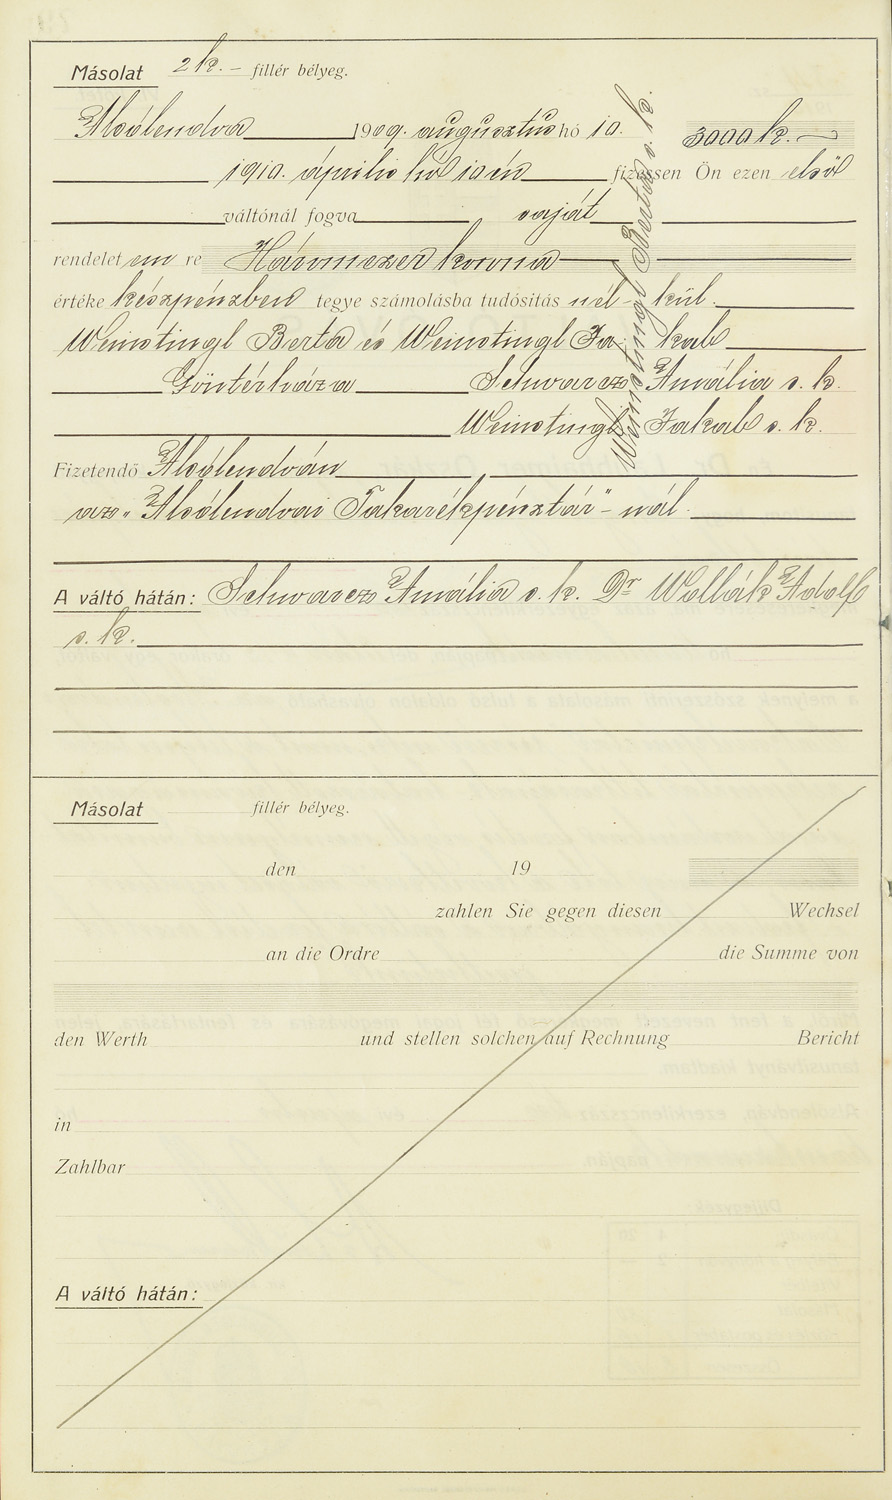 Másolat 2 k. – fillér bélyeg.
Alsólendva 1909. augusztus hó 10. 3000 k. –
1910. április hó 10 én fizessen Ön ezen első
váltónál fogva saját
rendelet em re Háromezer korona
értéke készpénzben tegye számolásba tudósitás nél- kül.
Weinstingl Berta és Weinstingl Ja- kab
Göntérháza Schwarcz Amália s. k.
Weinstingl Jakab s. k.
Weinstingl Berta s. k.
Fizetendő Alsólendván
az „Alsólendvai Takarékpénztár"- nál.
A váltó hátán: Schwarcz Amália s. k. Dr Wollák Adolf
s. k.
Másolat fillér bélyeg.
den 19
zahlen Sie gegen diesen Wechsel
an die Ordre die Summe von
den Werth und stellen solchen auf Rechnung Bericht
in
Zahlbar
A váltó hátán: